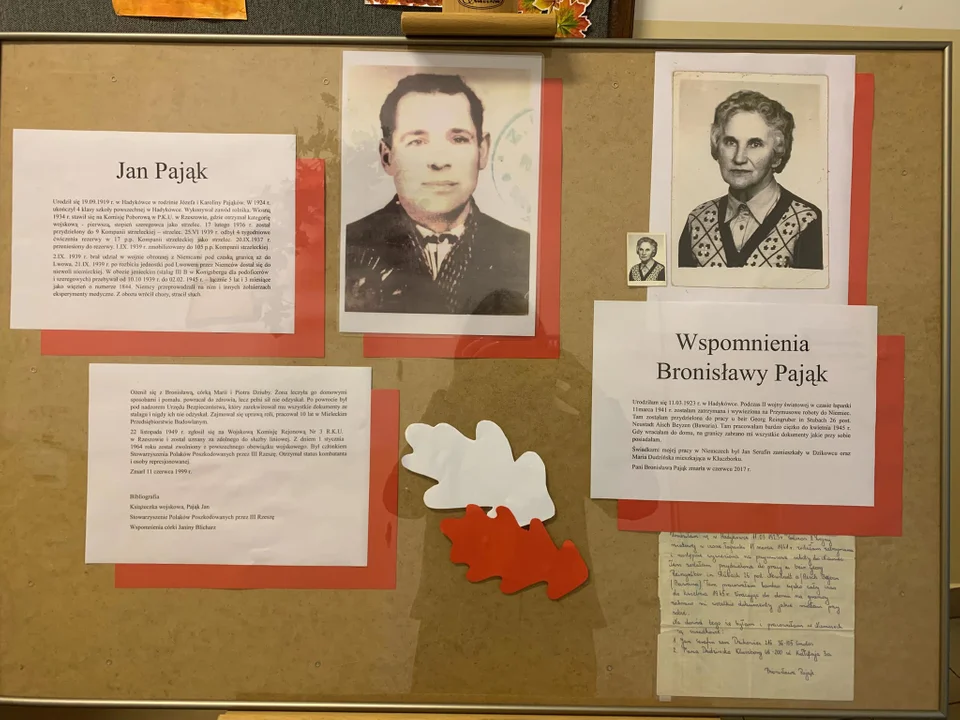 Jan Pająk
Urodził się 19.09.1919 r. w Hadykówce w rodzinie Józefa i Karoliny Pająków. W 1924 r.
ukończył 4 klasy szkoły powszechnej w Hadykówce. Wykonywał zawód rolnika. Wiosną
1934 r. stawił się na Komisję Poborową w P.K.U. w Rzeszowie, gdzie otrzymał kategorię
wojskową - pierwszą, stopień szeregowca jako strzelec. 17 lutego 1936 r. został
przydzielony do 9 Kompanii strzeleckiej – strzelec. 25.VI 1939 r. odbył 4 tygodniowe
ćwiczenia rezerwy w 17 p.p. Kompanii strzeleckiej jako strzelec. 20.IX.1937 r.
przeniesiony do rezerwy. 1.IX. 1939 r. zmobilizowany do 105 p.p. Kompanii strzeleckiej
2.IX. 1939 r. brał udział w wojnie obronnej z Niemcami pod czeską granicą aż do
Lwowa. 21.IX. 1939 r. po rozbiciu jednostki pod Lwowem przez Niemców dostał się do
niewoli niemieckiej. W obozie jenieckim (stalag III B w Konigsbergu dla podoficerów
i szeregowych) przebywał od 10.10 1939 r. do 02.02. 1945 r. – łącznie 5 lat i 3 miesiące
jako więzień o numerze 1864. Niemcy przeprowadzali na nim i innych żołnierzach
eksperymenty medyczne. Z obozu wrócił chory, stracił słuch.
Ożenił się z Bronisławą, córką Marii i Piotra Dziuby. Żona leczyła go domowymi
sposobami i pomału, powracał do zdrowia, lecz pełni sił nie odzyskał. Po powrocie był
pod nadzorem Urzędu Bezpieczeństwa, który zarekwirował mu wszystkie dokumenty ze
stalagu i nigdy ich nie odzyskał. Zajmował się uprawą roli, pracował 10 lat w Mieleckim
Przedsiębiorstwie Budowlanym.
22 listopada 1949 r. zgłosił się na Wojskową Komisję Rejonową Nr 3 R.K.U.
w Rzeszowie i został uznany za zdolnego do służby liniowej. Z dniem 1 stycznia
1964 roku został zwolniony z powszechnego obowiązku wojskowego. Był członkiem
Stowarzyszenia Polaków Poszkodowanych przez III Rzeszę. Otrzymał status kombatanta
i osoby represjonowanej.
Zmarł 11 czerwca 1999 r.
Bibliografia
Książeczka wojskowa, Pająk Jan
Stowarzyszenie Polaków Poszkodowanych przez III Rzeszę
Wspomnienia córki Janiny Blicharz
Wspomnienia
Bronisławy Pająk
Urodziłam się 11.03.1923 r. w Hadykówce. Podczas II wojny światowej w czasie łapanki
11marca 1941 r. zostałam zatrzymana i wywieziona na Przymusowe roboty do Niemiec.
Tam zostałam przydzielona do pracy u bein Georg Reingruber in Stubach 26 post.
Neustadt Aisch Beyern (Bawaria). Tam pracowałam bardzo ciężko do kwietnia 1945 r.
Gdy wracałam do domu, na granicy zabrano mi wszystkie dokumenty jakie przy sobie
posiadałam.
Świadkiem mojej pracy w Niemczech był Jan Serafin zamieszkały w Dzikowcu oraz
Maria Dudzińska mieszkająca w Kluczborku.
Pani Bronisława Pająk zmarła w czerwcu 2017 r.
Bronisława Pająk